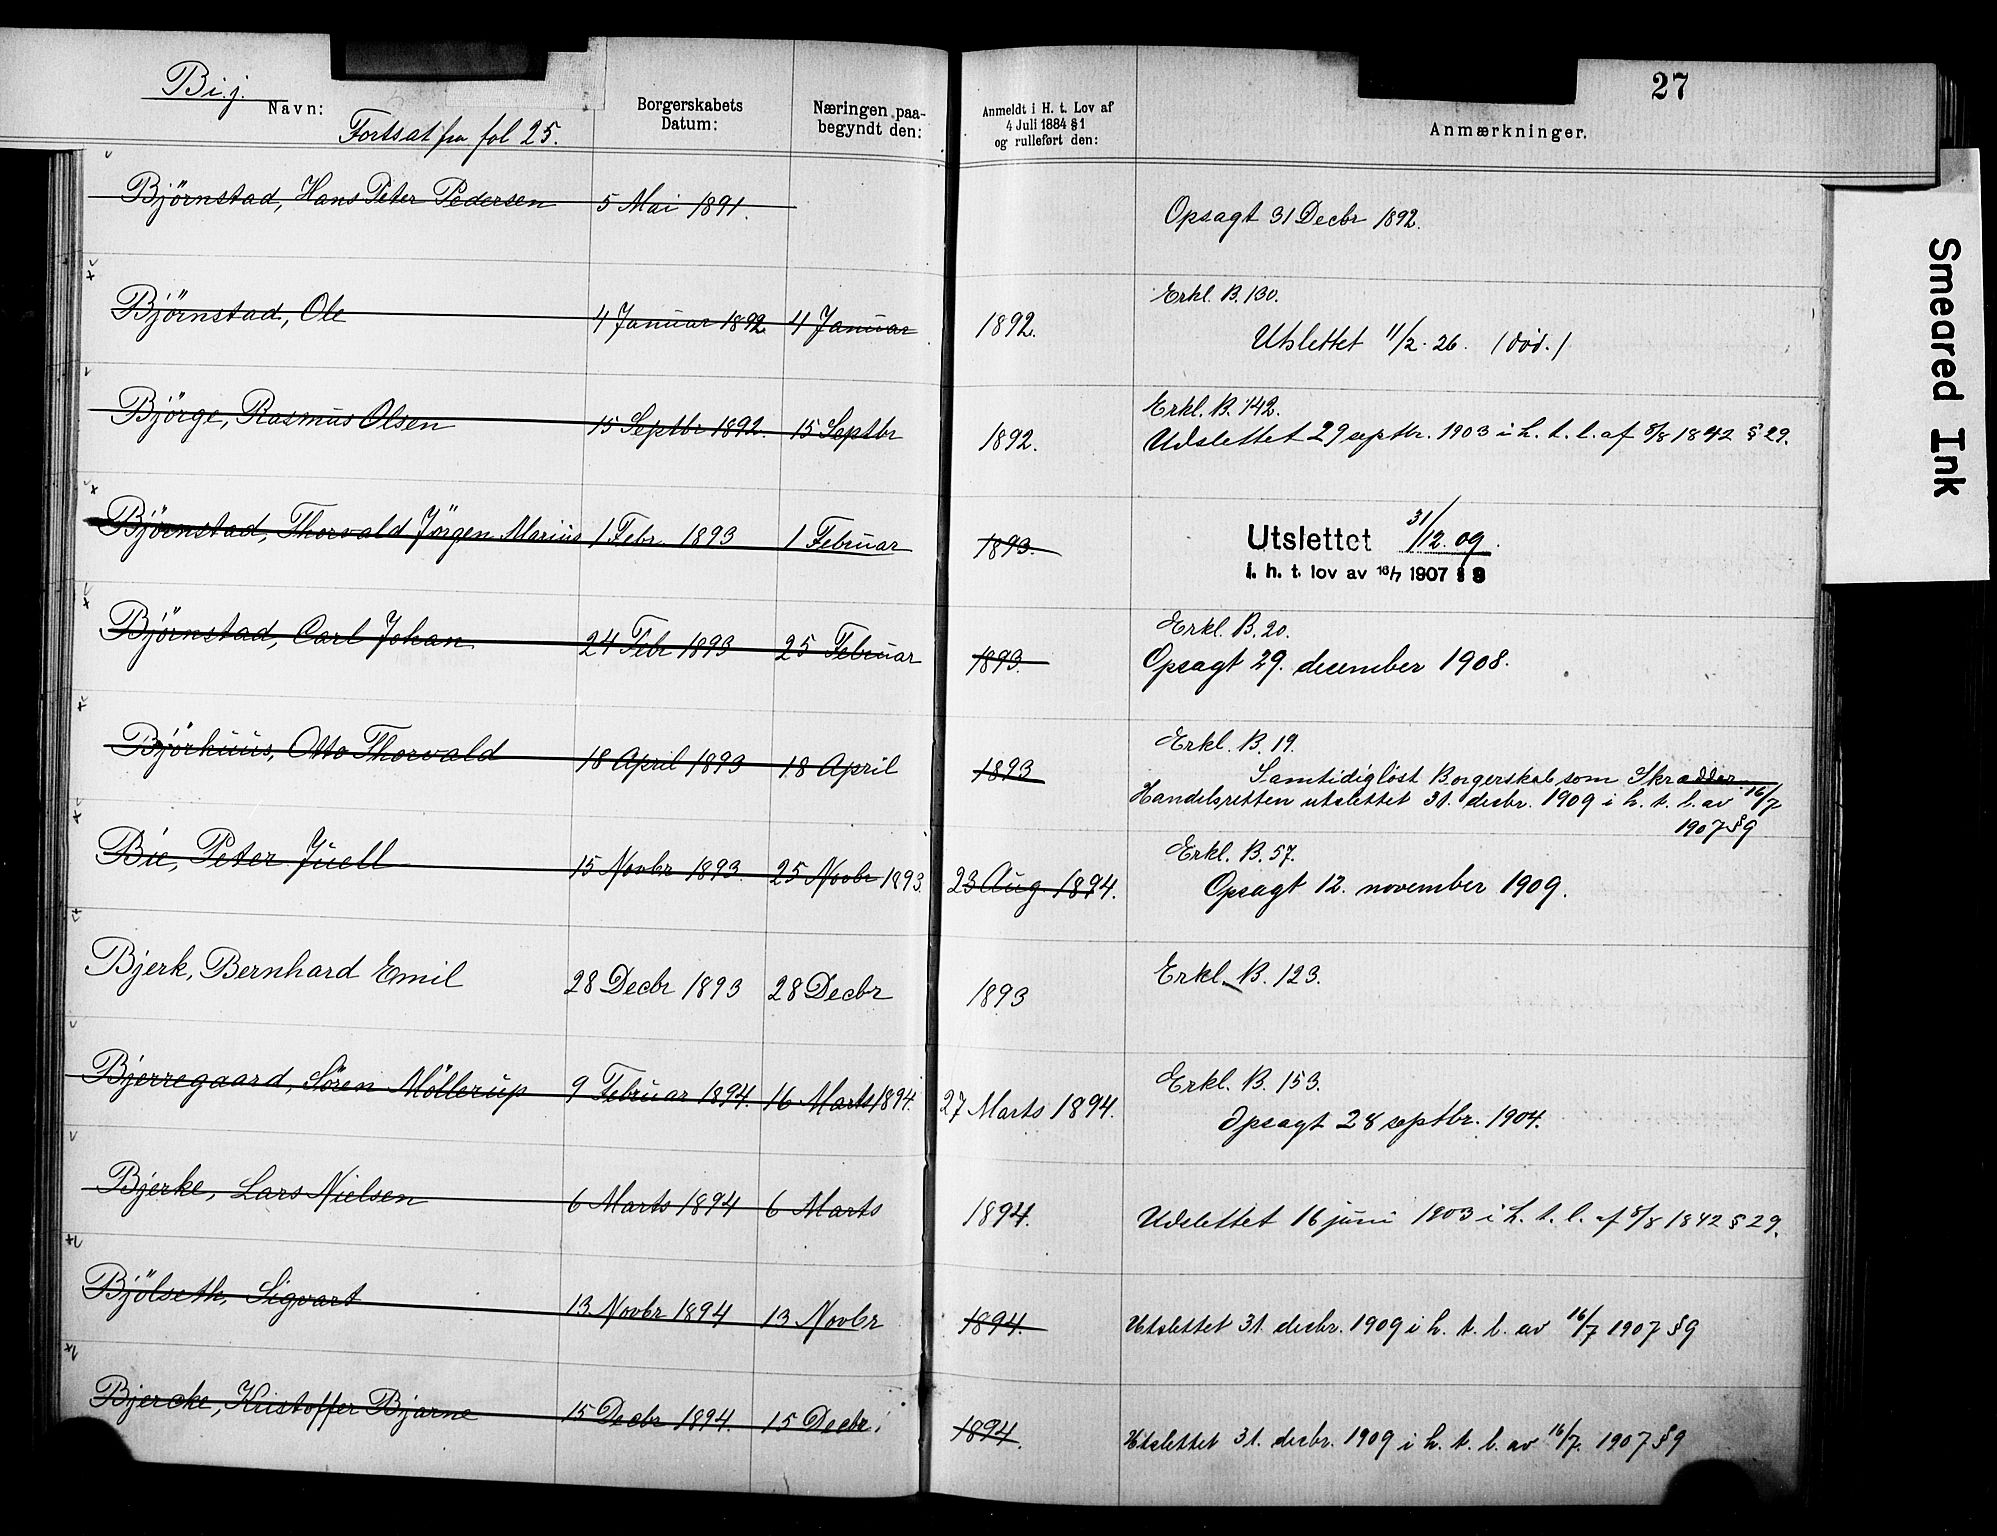 Bi.j.
27
Navn:
Borgerskabets
Datum:
Næringen paa-
begyndt den:
Anmeldt i H. t. Lov af
4 Juli 1884 § 1
og rulleført den:
Anmærkninger.
Fortsat fra fol 25.
Smeared Ink
Björnstad, Hans Peter Pedersen 5 Mai 1891. Opsagt 31 Decbr 1892.
Erkl. B. 130.
Björnstad, Ole 4 Januar 1892 4 Januar 1892.
Utslettet 11/2. 26. (död.)
Erkl. B. 142.
Björge, Rasmus Olsen 15 Septbr 1892. 15 Septbr 1892.
Udslettet 29 septbr. 1903 i h. t. l. af 8/8 1842 § 29.
Björnstad, Thorvald Jörgen Marius 1 Febr. 1893 1 Februar 1893.
Utslettet 31/12. 09.
i. h. t. lov av 16/7 1907 § 9
Erkl. B. 20.
Björnstad, Carl Johan 24 Febr 1893 25 Februar 1893.
Opsagt 29. december 1908.
Erkl. B. 19.
Björhuus, Otto Thorvald 18 April 1893 18 April 1893
Samtidig löst Borgerskab som Skrædder.
Handelsretten utslettet 31. decbr. 1909 i h. t. l. av 16/7
1907 § 9
Erkl. B. 57.
Bie, Peter Juell 15 Novbr 1893. 25 Novbr 1893. 23 Aug. 1894.
Opsagt 12. november 1909.
Bjerk, Bernhard Emil 28 Decbr 1893 28 Decbr 1893
Erkl. B. 123.
Erkl. B. 153.
Bjerregaard, Sören Möllerup 9 Februar 1894. 16 Marts 1894. 27 Marts 1894.
Opsagt 28 septbr. 1904.
Bjerke, Lars Nielsen 6 Marts 1894 6 Marts 1894.
Udslettet 16 juni 1903 i h. t. l. af 8/8 1842 § 29.
Bjölseth, Sigvart 13 Novbr 1894 13 Novbr 1894.
Utslettet 31. decbr. 1909 i h. t. l. av 16/7 1907 § 9
Bjercke, Kristoffer Bjarne 15 Decbr 1894. 15 Decbr. 1894.
Utslettet 31. decbr. 1909 i h. t. l. av 16/7. 1907 § 9